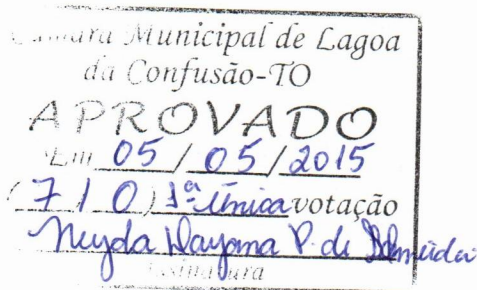 Câmara Municipal de Lagoa
da Confusão-TO
APROVADO
Em 05 / 05 / 2015
( 7 / 0 ) 1ª única votação
Neyda Dayana P. de Almeida
Assinatura